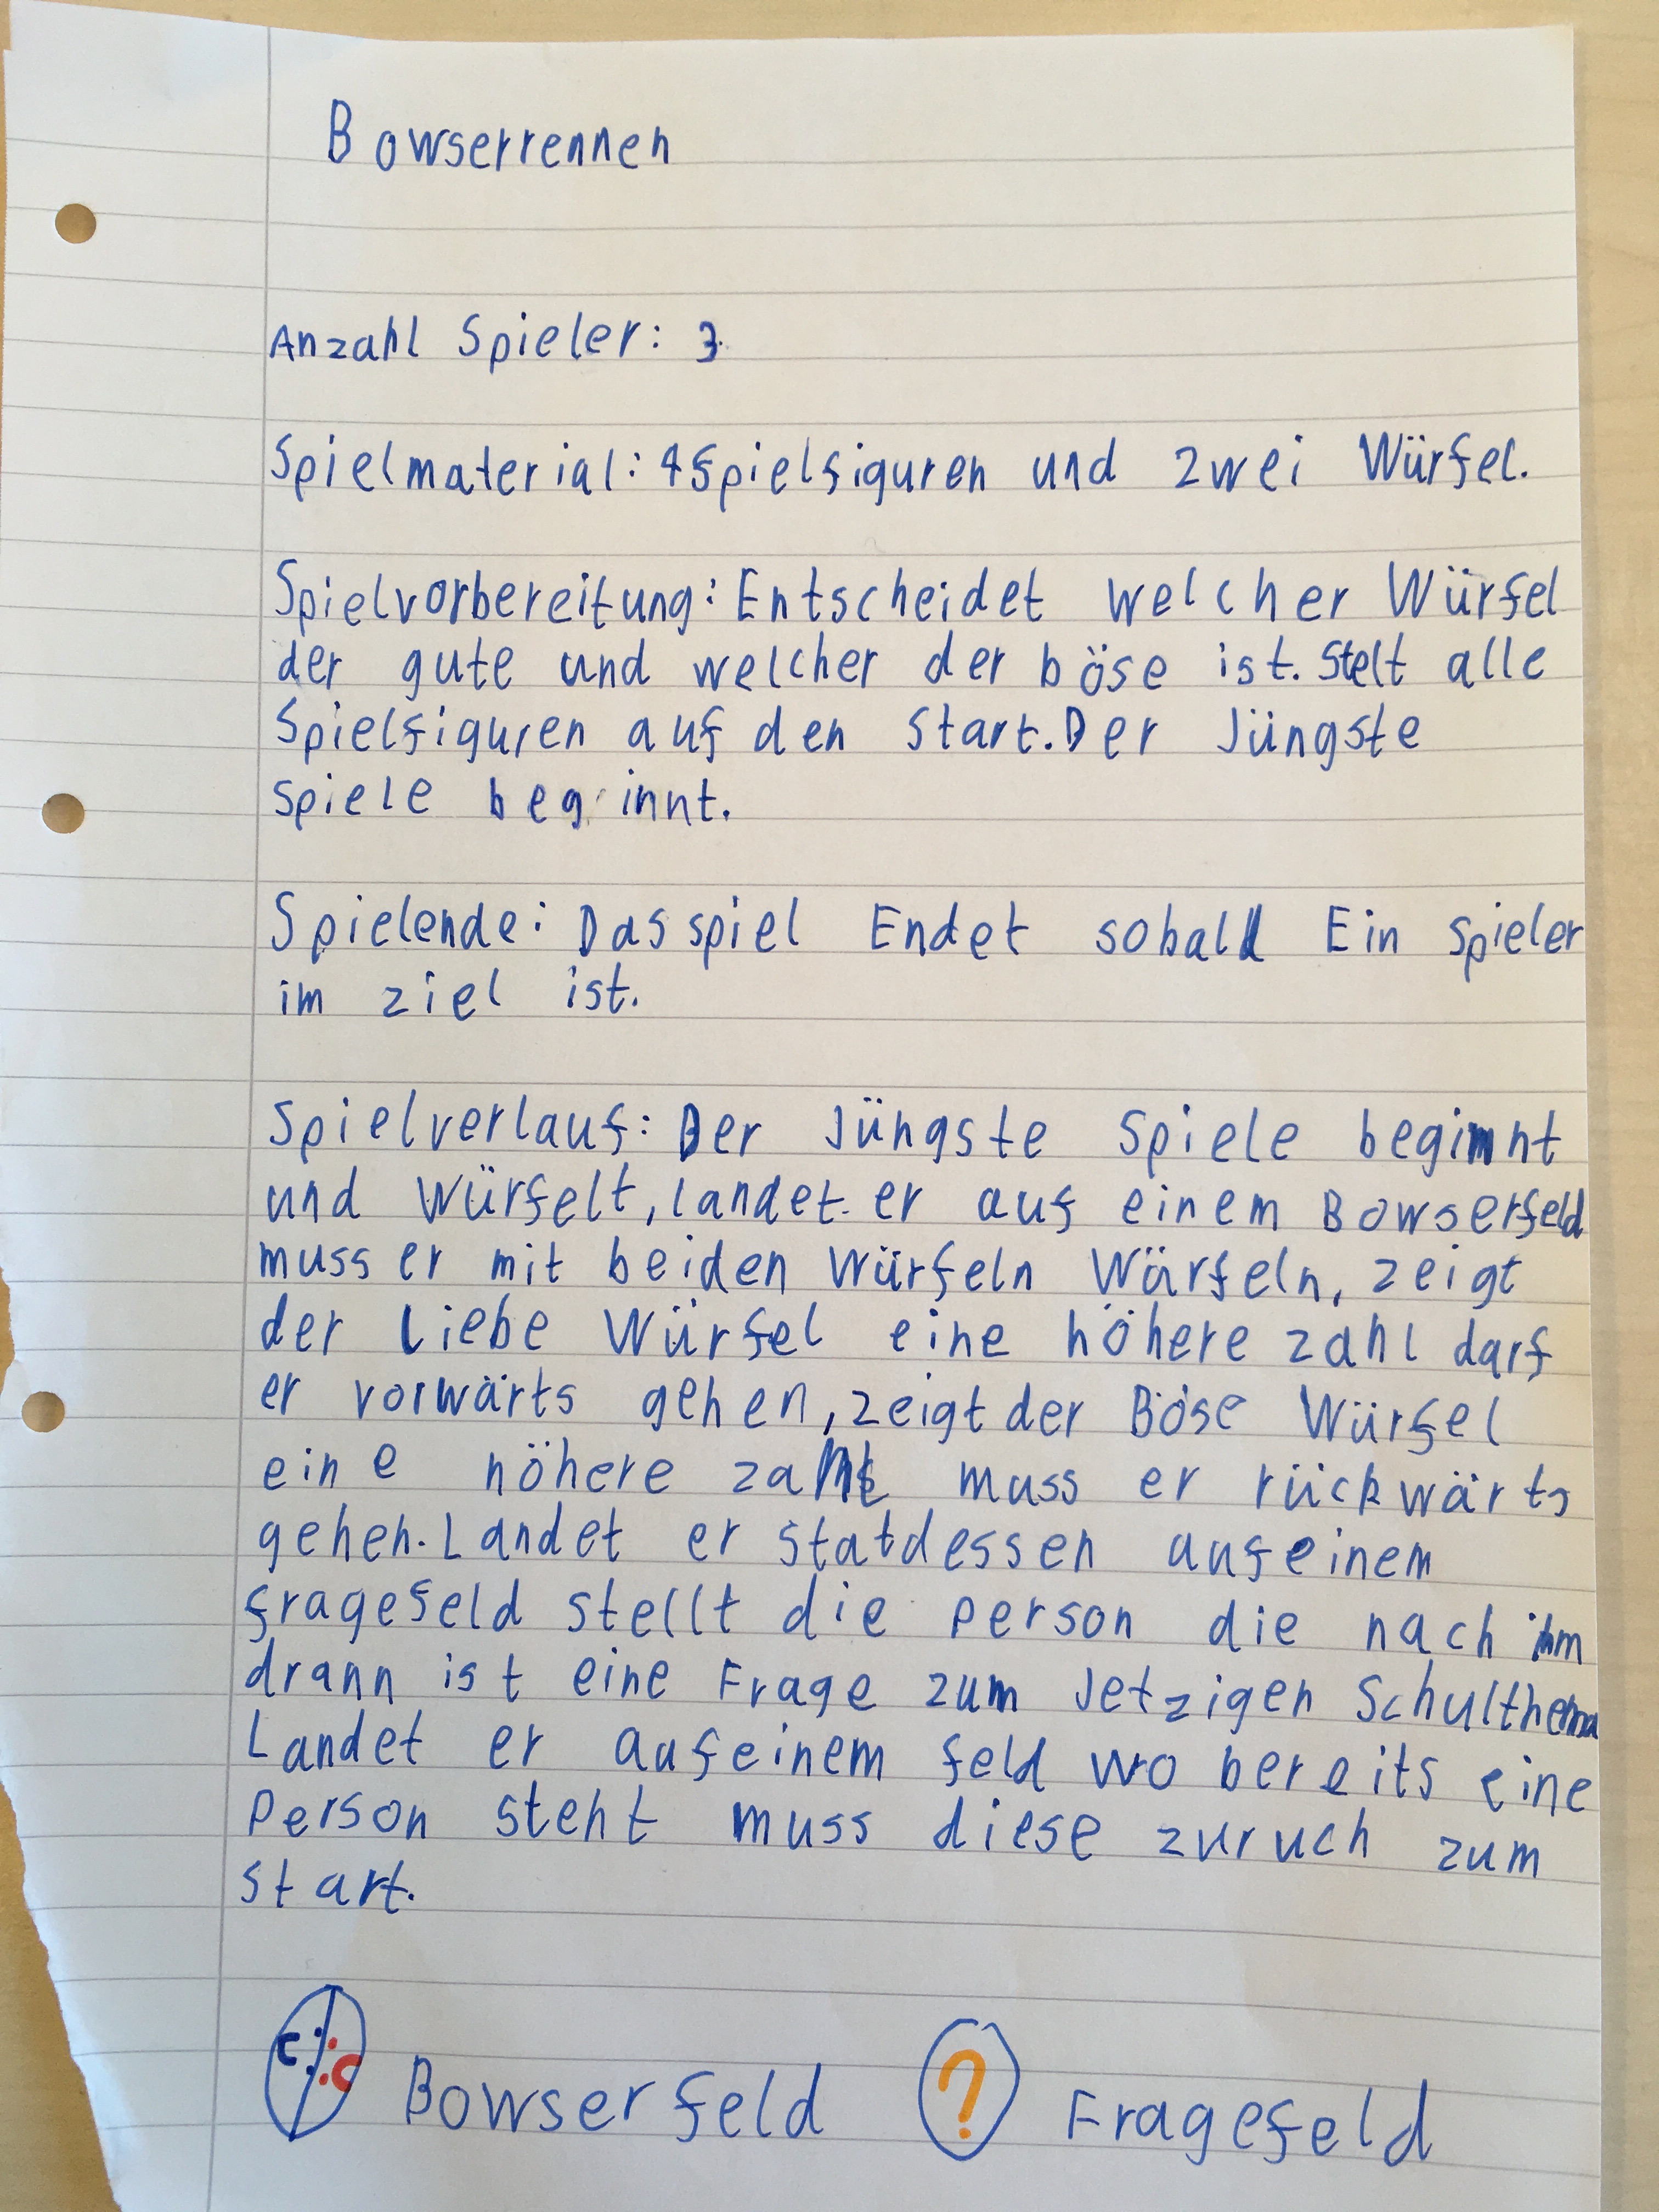 Bowserrennen
Anzahl Spieler: 3
Spielmaterial: 4 Spielfiguren und zwei Würfel.
Spielvorbereitung: Entscheidet welcher Würfel
der gute und welcher der böse ist. Stelt alle
Spielfiguren auf den Start. Der Jüngste
spiele beginnt.
Spielende: Das spiel Endet sobald Ein Spieler
im ziel ist.
Spielverlauf: Der Jüngste Spiele beginnt
und Würfelt, landet er auf einem Bowserfeld
muss er mit beiden Würfeln Würfeln, zeigt
der Liebe Würfel eine höhere zahl darf
er vorwärts gehen, zeigt der Böse Würfel
eine höhere zahl muss er rückwärts
gehen. Landet er statdessen auf einem
fragefeld stellt die person die nach ihm
drann ist eine Frage zum Jetzigen Schulthema
Landet er auf einem feld wo bereits eine
Person steht muss diese zuruch zum
start.
Bowserfeld ? Fragefeld